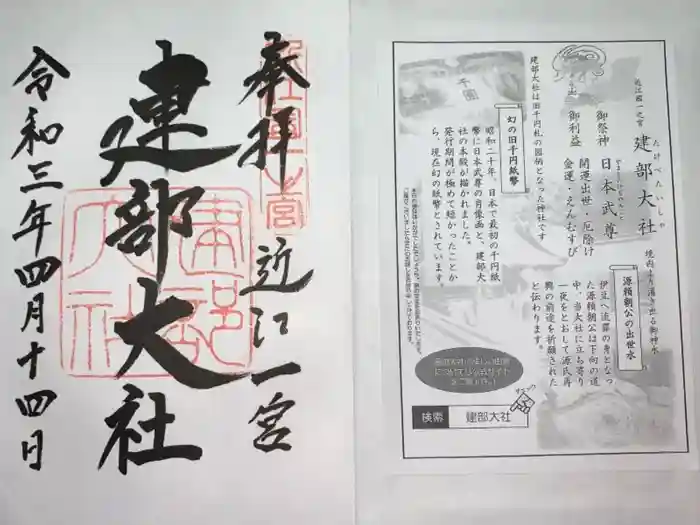 奉拝
近江一宮
建部大社
令和三年四月十四日
近江国一之宮
建部大社
たけべたいしゃ
御祭神 日本武尊
御利益 開運出世・厄除け
金運・えんむすび
建部大社は旧千円札の図柄となった神社です
幻の旧千円紙幣
昭和二十年、日本で最初の千円紙
幣に日本武尊の肖像画と、建部大
社の本殿が描かれました。
発行期間が極めて短かったことか
ら、現在幻の紙幣とされています。
境内より湧き出る御神水
源頼朝公の出世水
伊豆へ流罪の身となっ
た源頼朝公は下向の道
中、当大社に立ち寄り
一夜をとおして源氏再
興の前途を祈願された
と伝わります。
チェック
検索 建部大社